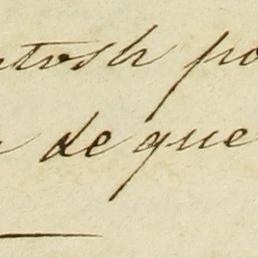 ntosh po
de que